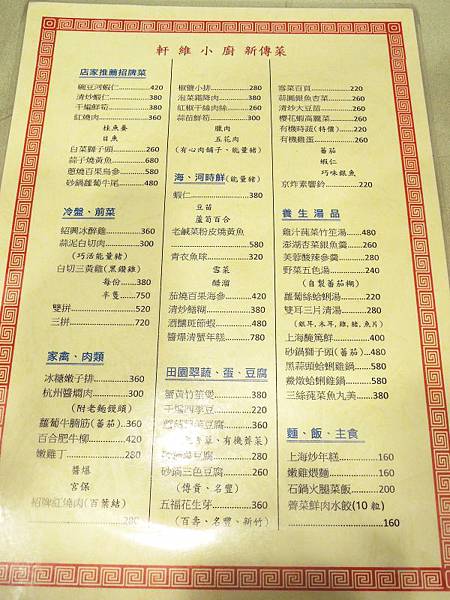 軒維小廚新傳菜
店家推薦招牌菜
豌豆河蝦仁............420
清炒蝦仁............380
干煸鮮筍............380
紅燒肉............360
桂魚羹
目魚
白菜獅子頭............260
蒜子燒黃魚............680
蔥燒百果烏參............580
砂鍋蘿蔔牛尾............480
冷盤、前菜
紹興冰醉雞............360
蒜泥白切肉............360
(巧活能量豬)
白切三黃雞(黑鑽雞)
每份............380
半隻............750
雙拼............520
三拼............720
家禽、肉類
冰糖嫩子排............360
杭州醬燜肉............300
(附老麵饅頭)
蘿蔔牛腩筋(蕃茄)..360
百合肥牛柳............420
嫩雞丁............280
醬爆
宮保
招牌紅燒肉(百葉結)
............280
椒鹽小排............280
泡菜霜降肉............380
紅椒干絲肉絲............260
蒜苗鮮筍............300
臘肉
五花肉
(有心肉舖子、能量豬)
海、河時鮮(能量豬)
蝦仁............380
豆苗
蘆筍百合
老鹹菜粉皮燒黃魚
............580
青衣魚球............320
雪菜
醋溜
茄燒百果海參............420
清炒鱔糊............380
酒釀斑節蝦............480
醬爆清蟹年糕............780
田園翠蔬、蛋、豆腐
蟹黃竹笙煲............380
干煸四季豆............220
豆腐............280
砂鍋三色豆腐............260
(傳貴、名豐)
五福花生芽............360
(百壽、名豐、新竹)
雪菜百頁............220
蒜圓銀魚杏菜............260
清炒大豆苗............260
櫻花蝦高麗菜............260
有機時蔬(特價)............220
有機雞蛋............260
蕃茄
蝦仁
巧味銀魚
京炸素響鈴............220
養生湯品
雞汁蒓菜竹笙湯............480
澎湖杏菜銀魚羹............260
芙蓉酸辣參羹............280
野菜五色湯............240
(自製蕃茄糊)
蘿蔔絲蛤蜊湯............220
雙耳三片清湯............280
(銀耳,木耳,雞,豬,魚片)
上海醃篤鮮............400
砂鍋獅子頭(蕃茄)............480
黑蒜頭蛤蜊雞鍋............580
嫩燉蛤蜊雞鍋............580
三絲蒓菜魚丸美............380
麵、飯、主食
上海炒年糕............160
嫩雞煨麵............160
石鍋火腿菜飯............200
薺菜鮮肉水餃(10粒)
............160